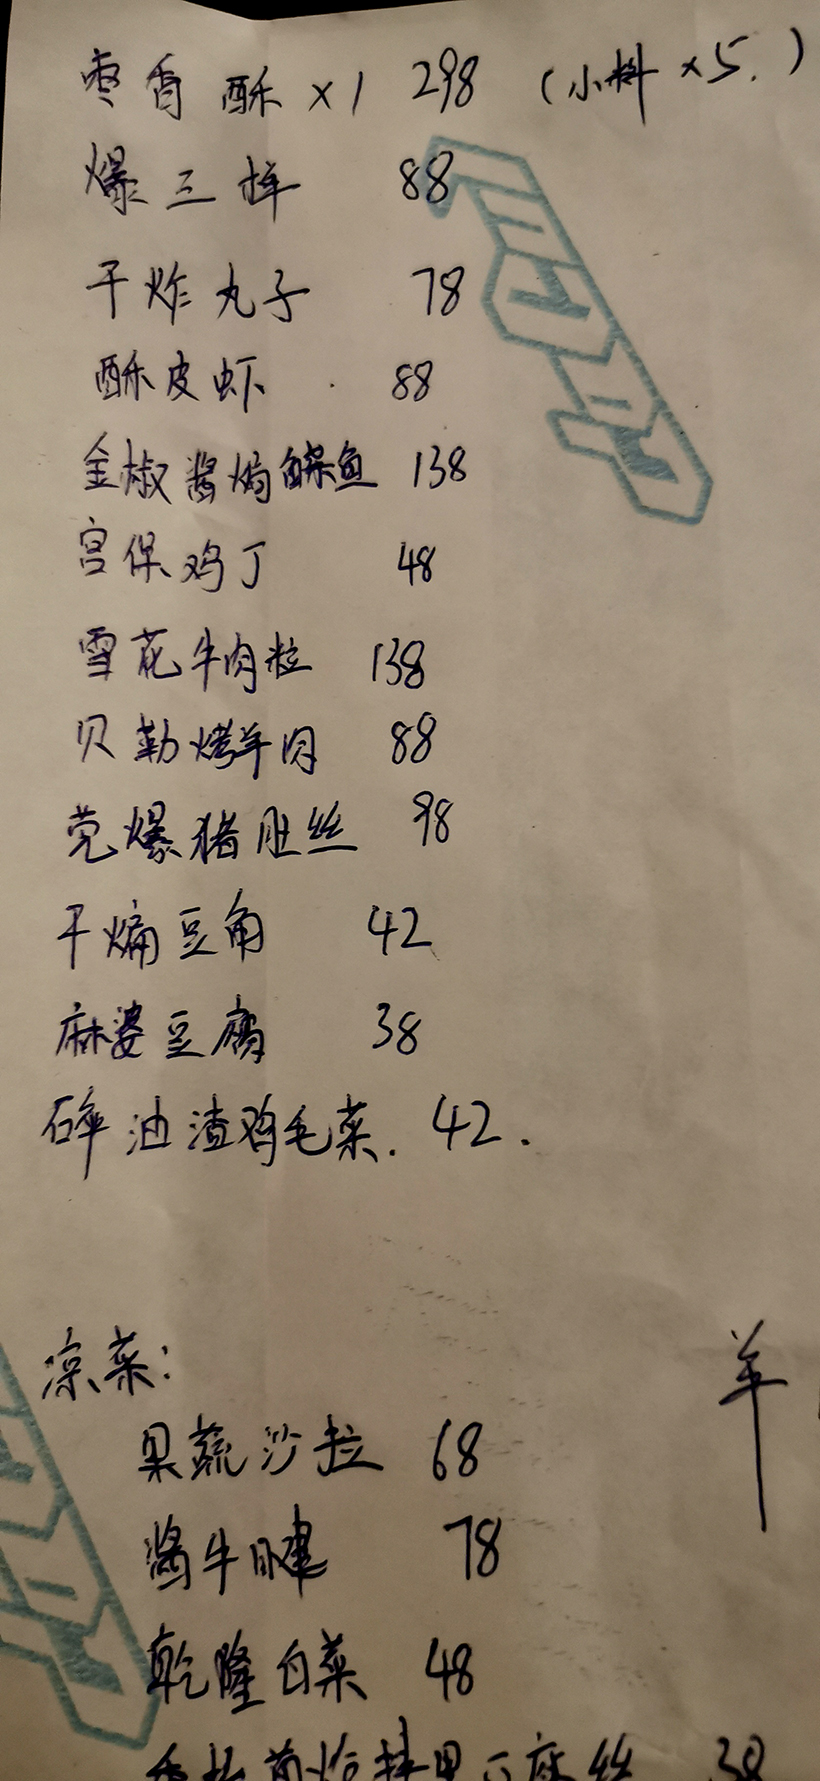 枣香酥 ×1 298 (小料 ×5.)
爆三样 88
干炸丸子 78
酥皮虾 88
金椒酱焗鳕鱼 138
宫保鸡丁 48
雪花牛肉粒 138
贝勒烤羊肉 88
芫爆猪肚丝 98
干煸豆角 42
麻婆豆腐 38
碎油渣鸡毛菜. 42.
凉菜:
羊
果蔬沙拉 68
酱牛腱 78
乾隆白菜 48
38